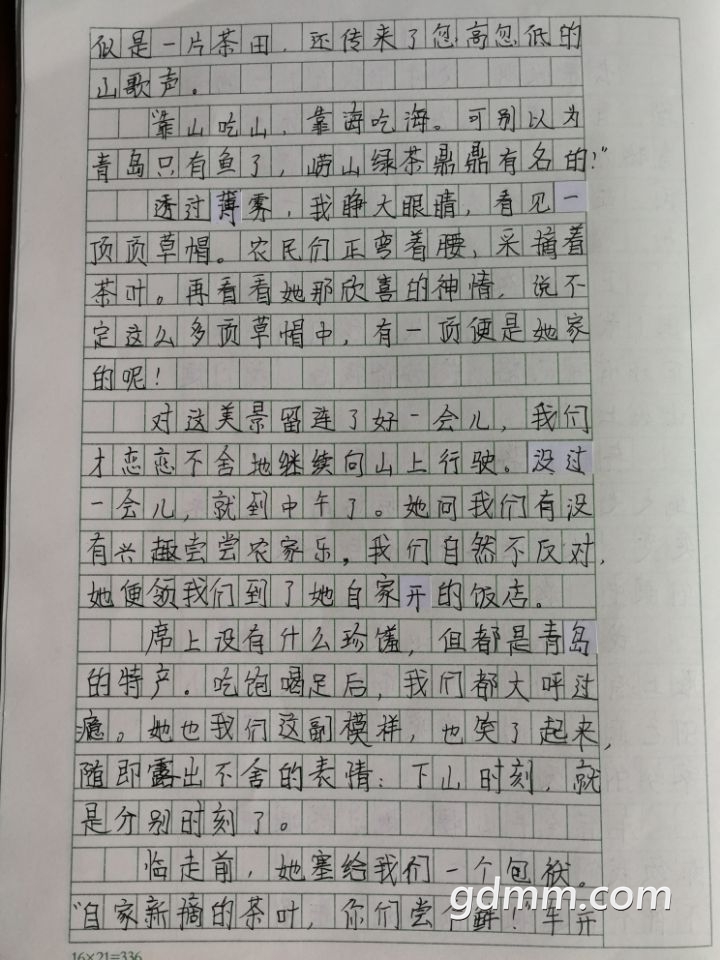 似是一片茶田，还传来了忽高忽低的
山歌声。
“靠山吃山，靠海吃海。可别以为
青岛只有鱼了，崂山绿茶鼎鼎有名的！”
透过薄雾，我睁大眼睛，看见一
顶顶草帽。农民们正弯着腰、采摘着
茶叶。再看看她那欣喜的神情，说不
定这么多顶草帽中，有一顶便是她家
的呢！
对这美景留连了好一会儿，我们
才恋恋不舍地继续向山上行驶。没过
一会儿，就到中午了。她问我们有没
有兴趣尝尝农家乐，我们自然不反对，
她便领我们到了她自家开的饭店。
席上没有什么珍馐，但都是青岛
的特产。吃饱喝足后，我们都大呼过
瘾。她也我们这副模样，也笑了起来，
随即露出不舍的表情：下山时刻，就
是分别时刻了。
临走前，她塞给我们一个包袱。
“自家新摘的茶叶，你们尝个鲜！”车开
gdmm.com
16×21=336